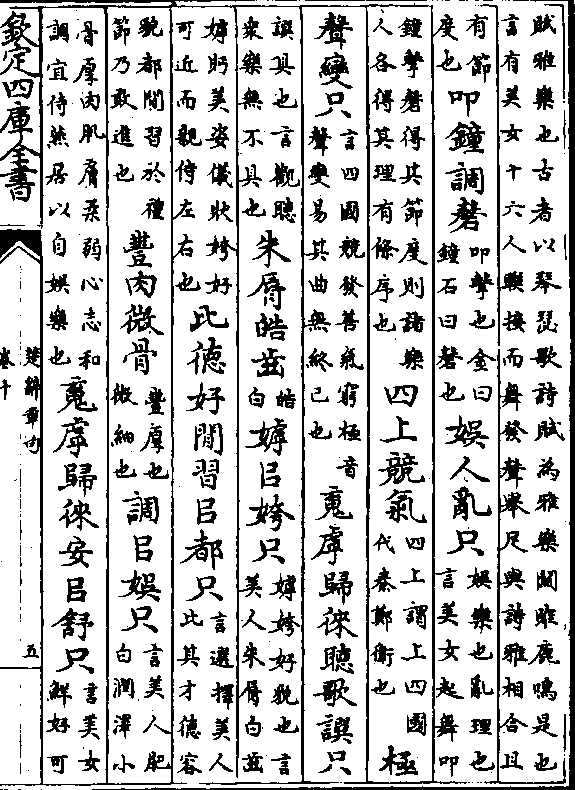 賦雅樂也古者以琴瑟歌詩賦為雅樂關雎鹿鳴是也言有美女十六人聯接而舞發聲舉足與詩雅相合且
有節度也叩鐘調磬叩擊也金曰鐘石曰磬也娛人亂只娛樂也亂理也言美女起舞叩
鐘擊磬得其節度則諸樂人各得其理有條序也四上競氣四上謂上四國代秦鄭衛也極
聲變只言四國競發善氣窮極音聲變易其曲無終已也䰟虖歸徠聽歌譔只
譔具也言觀聽衆樂無不具也朱脣皓齒皓白嫭㠯姱只嫭姱好貌也言美人朱脣白齒
嫭眄美姿儀狀姱好可近而親侍左右也比德好閒習㠯都只言選擇美人比其才德容
貌都閒習於禮節乃敢進也豐肉微骨豐厚也微細也調㠯娛只言美人肥白潤澤小
骨厚肉肌膚柔弱心志和調宜侍燕居以自娛樂也䰟虖歸徠安㠯舒只言美女鮮好可
欽定四庫全書
楚辭章句
卷十
五